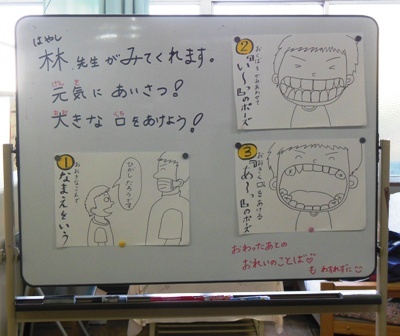 はやし
林 先生がみてくれます。
げんき
元気に あいさつ!
おお くち
大きな 口をあけよう!
1
おおきなこえで
なまえをいう
ひがしたろうです
2
おくばをかみあわせて
「い〜っ」のは
3
おおきく口をあける
「あ〜っ」のは
おわったあとの
おれいのことば♡
も わすれずに